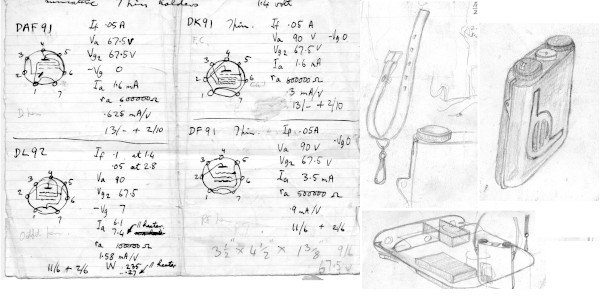 7 pins holders 1.4 volt
DAF91
If .05A
Va 67.5V
Vg2 67.5V
-Vg 0
Ia 1.6 mA
ra 600000 Ω
.625 mA/V
13/- + 2/10
DK91 7 pin.
If .05A
Va 90 V -Vg 0
Vg2 67.5V
Ia 1.6 mA
ra 600000 Ω
.3 mA/V
13/- + 2/10
DL92
If .1 at 1.4
.05 at 2.8
Va 90
Vg2 67.5
-Vg 7
Ia 6.1
7.4 // heater
ra 100000 Ω
1.58 mA/V
11/6 + 2/6 W .235
.27 // heater
DF91 7 pin.
If .05A
Va 90V -Vg 0
Vg2 67.5V
Ia 3.5 mA
ra 500000 Ω
.9 mA/V
11/6 + 2/6
3 1/2" × 4 1/2" × 1 3/8 9/6
67.5 V